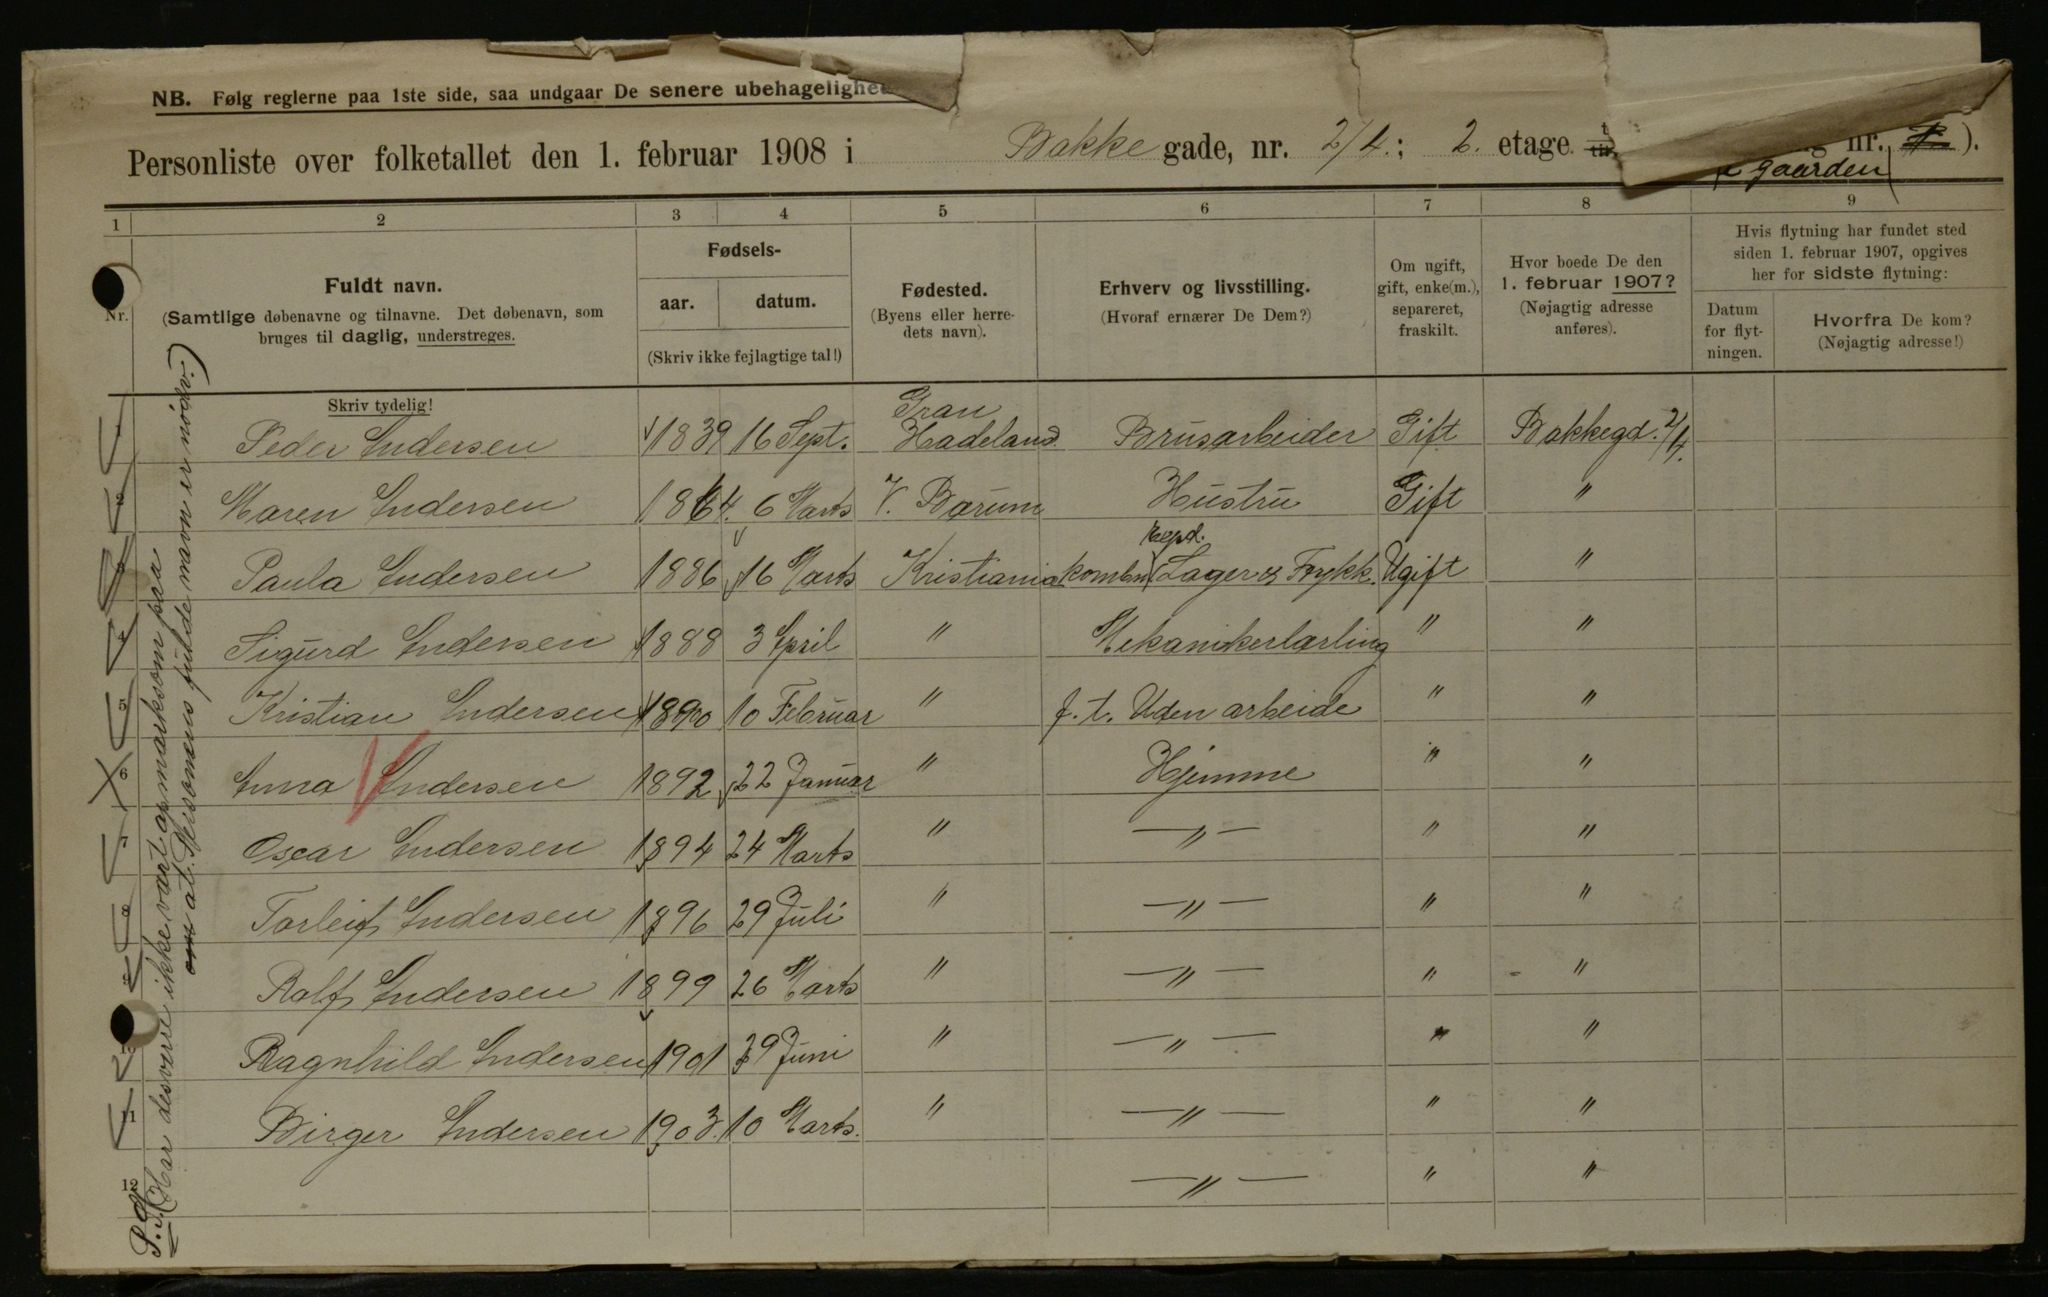 NB. Følg reglerne paa 1ste side, saa undgaar De senere ubehagelighe
Personliste over folketallet den 1. februar 1908 i Bakke gade, nr. 2/4.; 2. etage nr.
gaarden
1 2 3 4 5 6 7 8 9
Nr.
Fuldt navn.
(Samtlige døbenavne og tilnavne. Det døbenavn, som
bruges til daglig, understreges.
Skriv tydelig!
Fødsels-
aar. datum.
(Skriv ikke fejlagtige tal!)
Fødested.
(Byens eller herre-
dets navn).
Erhverv og livsstilling.
(Hvoraf ernærer De Dem?)
Om ugift,
gift, enke(m.),
separeret,
fraskilt.
Hvor boede De den
1. februar 1907?
(Nøjagtig adresse
anføres).
Hvis flytning har fundet sted
siden 1. februar 1907, opgives
her for sidste flytning:
Datum
for flyt-
ningen.
Hvorfra De kom?
(Nøjagtig adresse!)
1 Peder Andersen 1839 16 Sept. Gran Hadeland Brusarbeider Gift Bakkegd. 2/4.
2 Maren Andersen 1864. 6 Marts V. Bærum Hustru Gift "
3 Paula Andersen 1886 16 Marts Kristiania kombn. Lager & Trykk. Ugift "
4 Sigurd Andersen 1888 3 April " Mekanikerlærling " "
5 Kristian Andersen 1890 10 Februar " f. t. Uden arbeide " "
6 Anna Andersen 1892 22 Januar " Hjemme " "
7 Oscar Andersen 1894 24 Marts " —"— " "
8 Torleif Andersen 1896 29 Juli " —"— " "
9 Rolf Andersen 1899 26 Marts " —"— " "
10 Ragnhild Andersen 1901 29 Juni " —"— " "
11 Birger Andersen 1903. 10 Marts. " —"— " "
12 —"— " "
P.S. (Har desværre ikke vært opmærksom paa
at Personens fulde navn er nødv.)